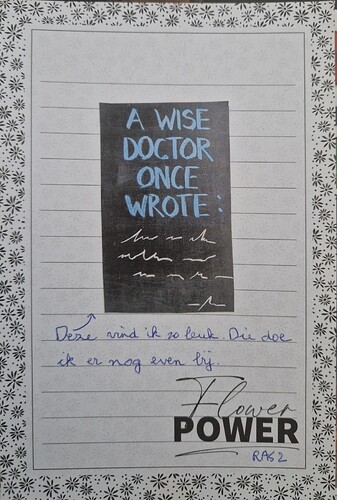 A WISE
DOCTOR
ONCE
WROTE:
Deze vind ik zo leuk. Die doe
ik er nog even bij.
Flower
POWER
RAS2